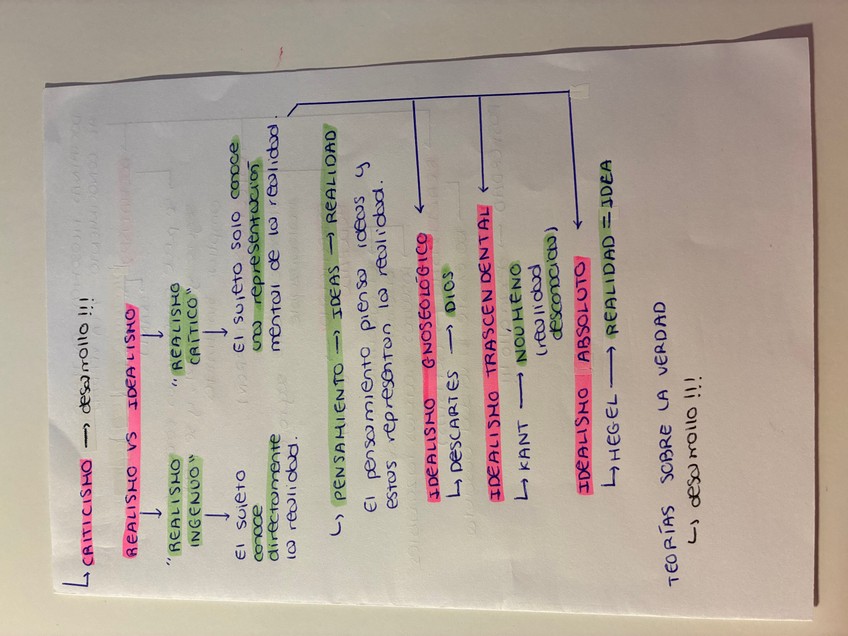 ↳ CRITICISMO → desarrollo !!!
REALISMO VS IDEALISMO
"REALISMO INGENUO"
El sujeto
conoce
directamente
la realidad.
"REALISMO CRÍTICO"
El sujeto solo conoce
una representación
mental de la realidad.
↳ PENSAMIENTO → IDEAS → REALIDAD
El pensamiento piensa ideas y
estas representan la realidad.
IDEALISMO GNOSEOLÓGICO
↳ DESCARTES → DIOS
IDEALISMO TRASCENDENTAL
↳ KANT → NOÚMENO
(realidad
desconocida)
IDEALISMO ABSOLUTO
↳ HEGEL → REALIDAD = IDEA
TEORÍAS SOBRE LA VERDAD
↳ desarrollo !!!